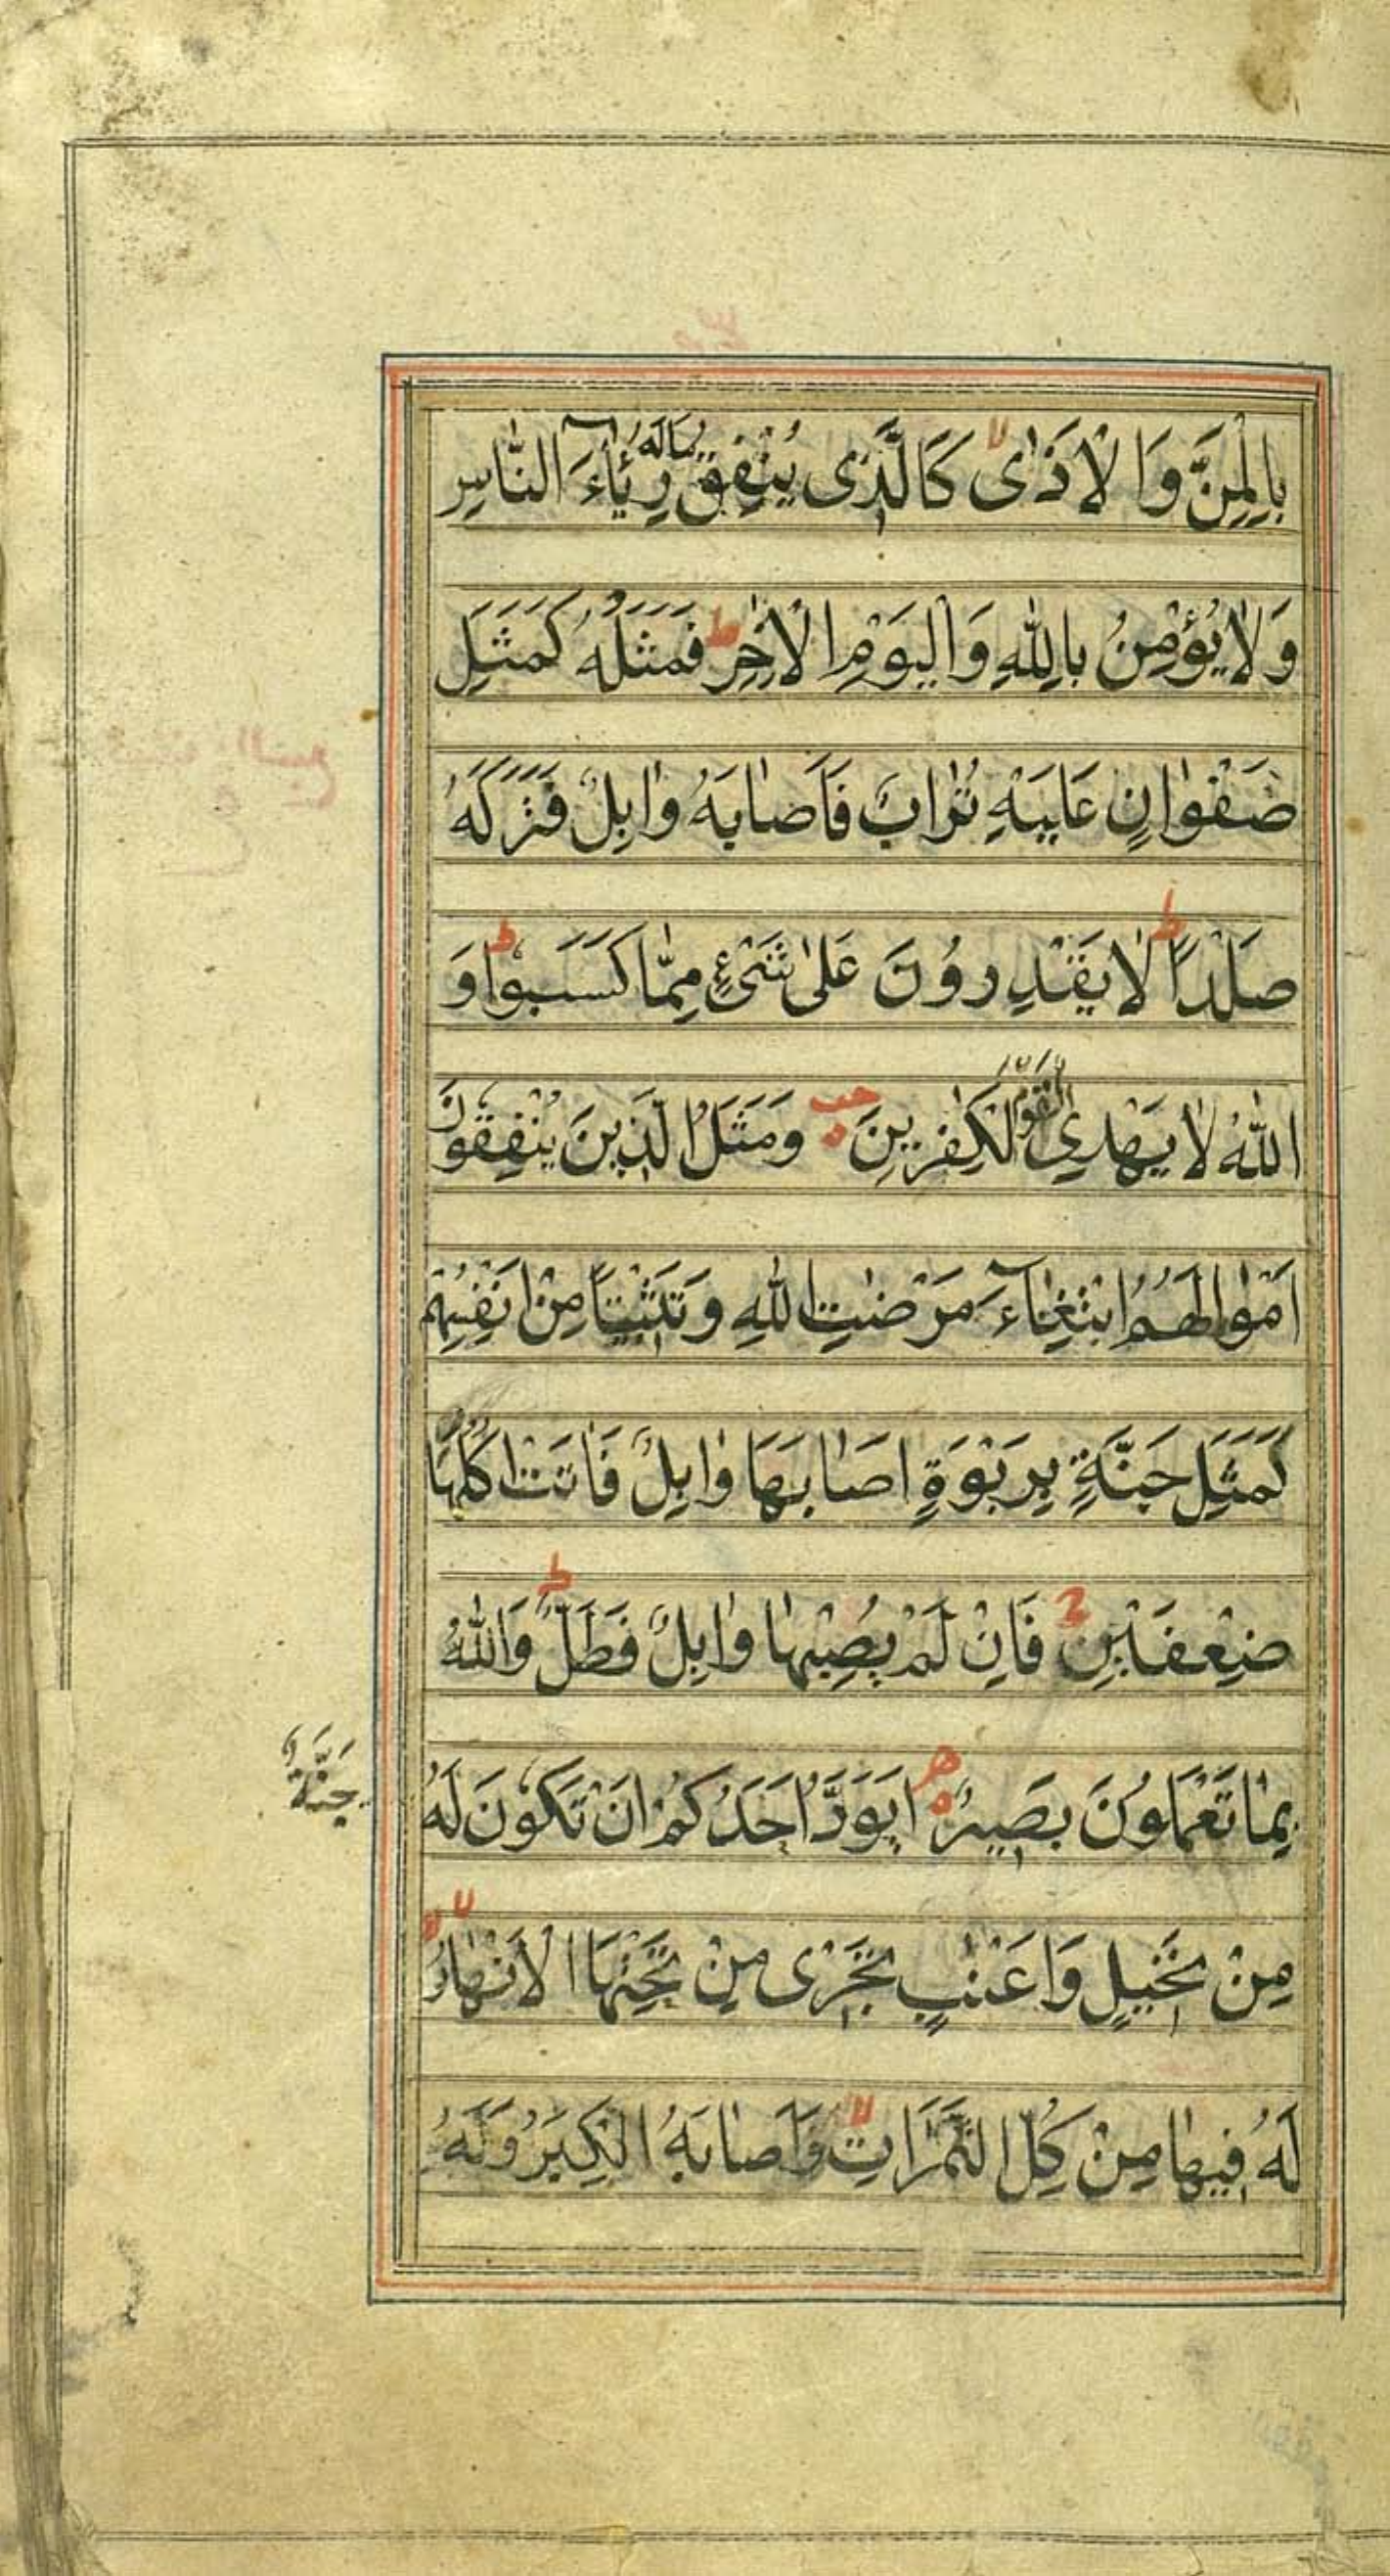 بِالْمَنِّ وَالْاَذٰى لا كَالَّذِى يُنْفِقُ مَالَهُ رِئَآءَ النَّاسِ
وَلَا يُؤْمِنُ بِاللّٰهِ وَالْيَوْمِ الْاٰخِرِ ط فَمَثَلُهُ كَمَثَلِ
صَفْوَانٍ عَلَيْهِ تُرَابٌ فَاَصَابَهُ وَابِلٌ فَتَرَكَهُ
صَلْدًا ط لَا يَقْدِرُوْنَ عَلٰى شَىْءٍ مِمَّا كَسَبُوْا ط وَ
اللّٰهُ لَا يَهْدِى الْقَوْمَ الْكٰفِرِيْنَ وَمَثَلُ الَّذِيْنَ يُنْفِقُوْنَ
اَمْوَالَهُمُ ابْتِغَآءَ مَرْضَاتِ اللّٰهِ وَتَثْبِيْتًا مِنْ اَنْفُسِهِمْ
كَمَثَلِ جَنَّةٍ بِرَبْوَةٍ اَصَابَهَا وَابِلٌ فَاٰتَتْ اُكُلَهَا
ضِعْفَيْنِ ج فَاِنْ لَمْ يُصِبْهَا وَابِلٌ فَطَلٌّ ط وَاللّٰهُ
بِمَا تَعْمَلُوْنَ بَصِيْرٌ اَيَوَدُّ اَحَدُكُمْ اَنْ تَكُوْنَ لَهُ
جَنَّةٌ
مِنْ نَخِيْلٍ وَاَعْنٰبٍ تَجْرِى مِنْ تَحْتِهَا الْاَنْهَارُ لا
لَهُ فِيْهَا مِنْ كُلِّ الثَّمَرَاتِ لا وَاَصَابَهُ الْكِبَرُ وَلَهُ